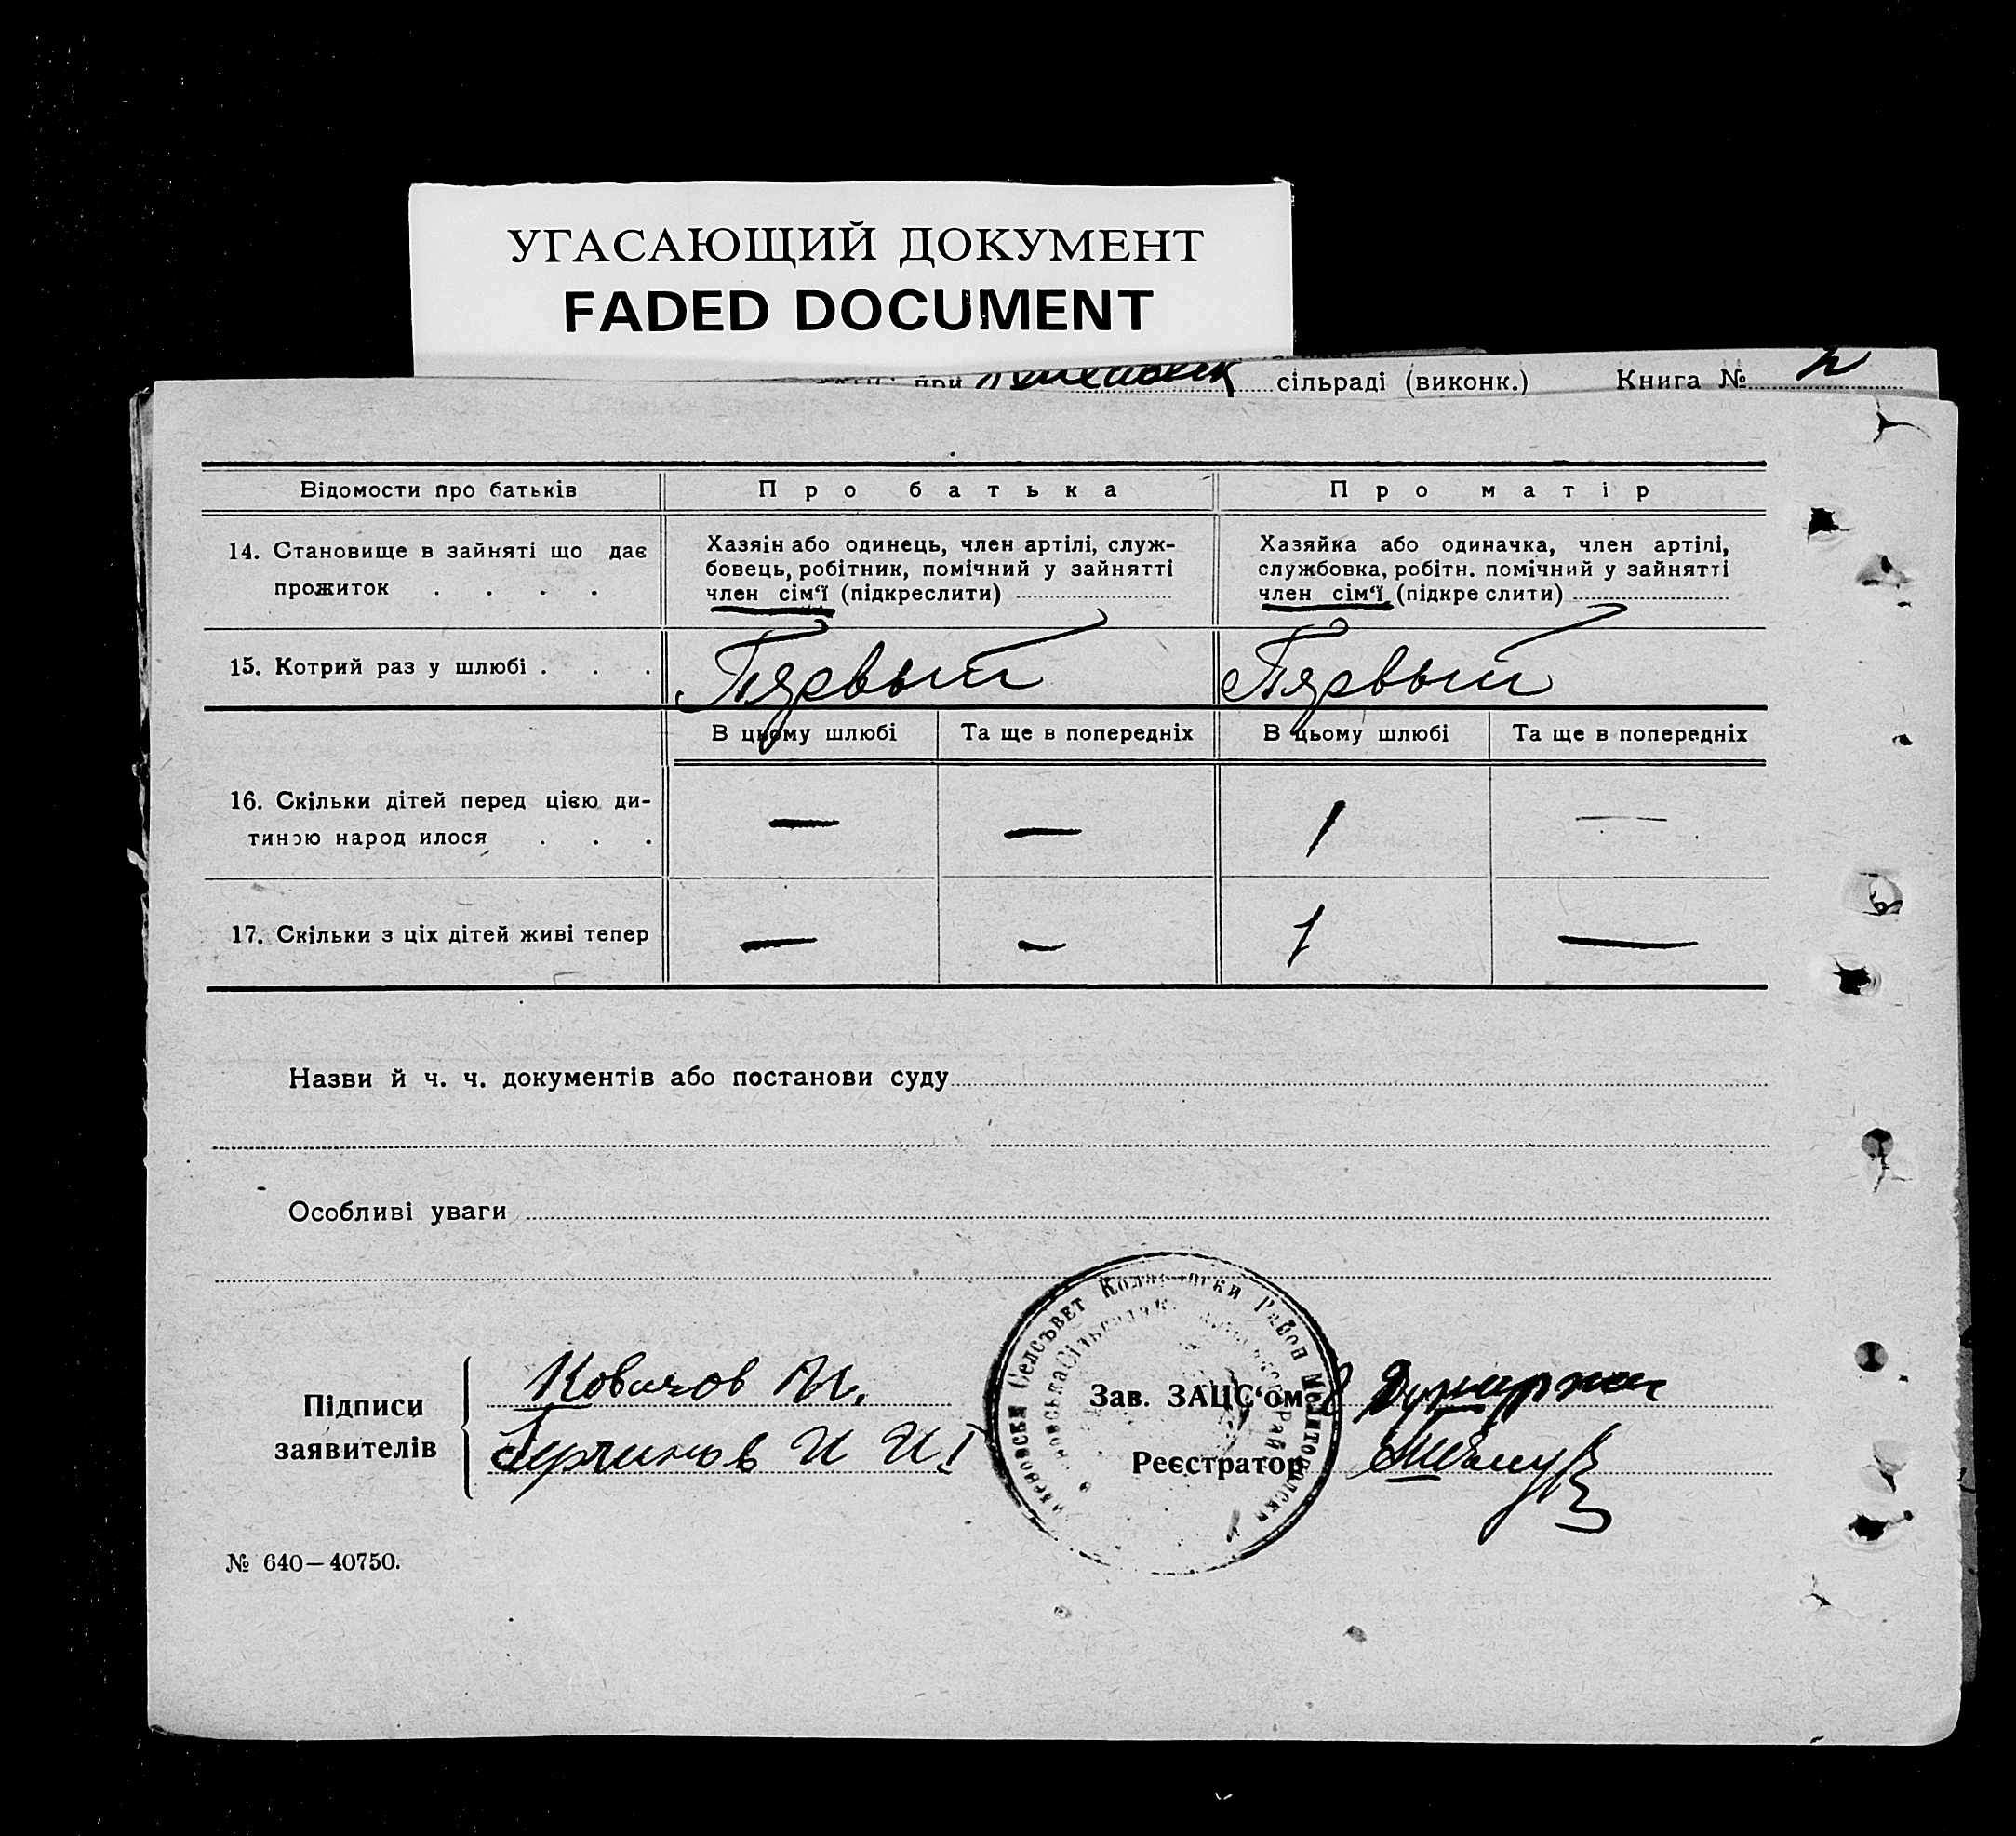 УГАСАЮЩИЙ ДОКУМЕНТ
FADED DOCUMENT
при сільраді (виконк.) Книга №
Відомости про батьків Про батька Про матір
14. Становище в зайняті що дає
прожиток . . . .
Хазяїн або одинець, член артілі, служ-
бовець, робітник, помічний у зайнятті
член сім'ї (підкреслити)
Хазяйка або одиначка, член артілі,
службовка, робітн. помічний у зайнятті
член сім'ї (підкре слити)
15. Котрий раз у шлюбі . . . Пярвый Пярвый
В цьому шлюбі Та ще в попередніх В цьому шлюбі Та ще в попередніх
16. Скільки дітей перед цією ди-
тиною народ илося . . . — — 1 —
17. Скільки з ціх дітей живі тепер — — 1 —
Назви й ч. ч. документів або постанови суду
Особливі уваги
Підписи
заявителів
Селсъвет Район
Зав. ЗАЦС'ом
Реєстратор
№ 640—40750.